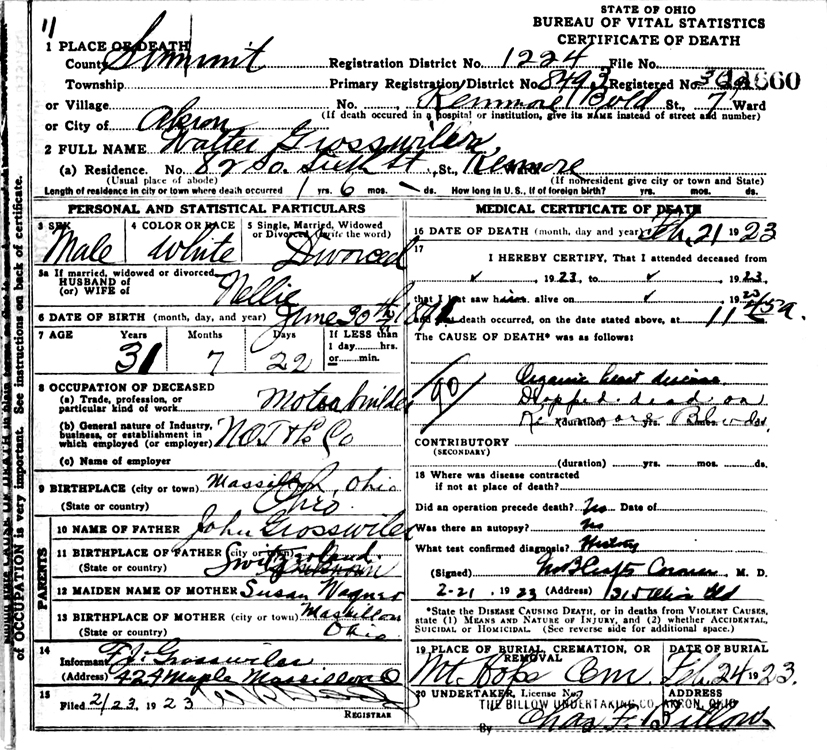 11
STATE OF OHIO
BUREAU OF VITAL STATISTICS
CERTIFICATE OF DEATH
1 PLACE OF DEATH
County Summit Registration District No. 1224 File No.
Township Primary Registration District No. 8493 Registered No. 660
or Village No. Kenmore Bvld St., 7 Ward
(If death occured in a hospital or institution, give its NAME instead of street and number)
or City of Akron
2 FULL NAME Walter Grosswiler,
(a) Residence. No. 82 So. Sixth St, St., Kenmore
(Usual place of abode) (If nonresident give city or town and State)
Length of residence in city or town where death occurred 1 yrs. 6 mos. - ds. How long in U.S., if of foreign birth? yrs. mos. ds.
PERSONAL AND STATISTICAL PARTICULARS
3 SEX Male
4 COLOR OR RACE White
5 Single, Married, Widowed or Divorced (write the word) Divorced
5a If married, widowed or divorced
HUSBAND of
(or) WIFE of Nellie
6 DATE OF BIRTH (month, day, and year) June 30th 1891
7 AGE Years Months Days If LESS than
31 7 22 1 day.......hrs.
or.......min.
8 OCCUPATION OF DECEASED
(a) Trade, profession, or
particular kind of work
(b) General nature of Industry,
business, or establishment in
which employed (or employer) N.O.T & L Co
(c) Name of employer
9 BIRTHPLACE (city or town) Massillon, Ohio
(State or country) Ohio
PARENTS
10 NAME OF FATHER John Grosswiler
11 BIRTHPLACE OF FATHER (city or town)
(State or country) Switzerland
12 MAIDEN NAME OF MOTHER Susan Wagner
13 BIRTHPLACE OF MOTHER (city or town) Massillon
(State or country) Ohio
14
Informant F.J. Grosswiler
(Address) 424 Maple Massillon O
15
Filed 2/23, 1923
REGISTRAR
MEDICAL CERTIFICATE OF DEATH
16 DATE OF DEATH (month, day and year) Feb. 21 1923
17
I HEREBY CERTIFY, That I attended deceased from
✓, 1923, to ✓, 1923,
that I last saw him alive on ✓, 1923
and that death occurred, on the date stated above, at 11 45 a.
The CAUSE OF DEATH* was as follows:
90
Organic heart disease.
Dropped dead on
Kenmore Blvd.
(duration) yrs. mos. ds.
CONTRIBUTORY
(SECONDARY)
(duration) yrs. mos. ds.
18 Where was disease contracted
if not at place of death?
Did an operation precede death? No Date of
Was there an autopsy? No
What test confirmed diagnosis? History
(Signed) Coroner, M. D.
2-21, 1923 (Address)
*State the DISEASE CAUSING DEATH, or in deaths from VIOLENT CAUSES,
state (1) MEANS AND NATURE OF INJURY, and (2) whether ACCIDENTAL,
SUICIDAL or HOMICIDAL. (See reverse side for additional space.)
19 PLACE OF BURIAL, CREMATION, OR REMOVAL DATE OF BURIAL
Mt. Hope Cem. Feb. 24 1923.
20 UNDERTAKER, License No. ADDRESS
THE BILLOW UNDERTAKING CO. AKRON, OHIO
By Chas F. Billow
of OCCUPATION is very important. See instructions on back of certificate.